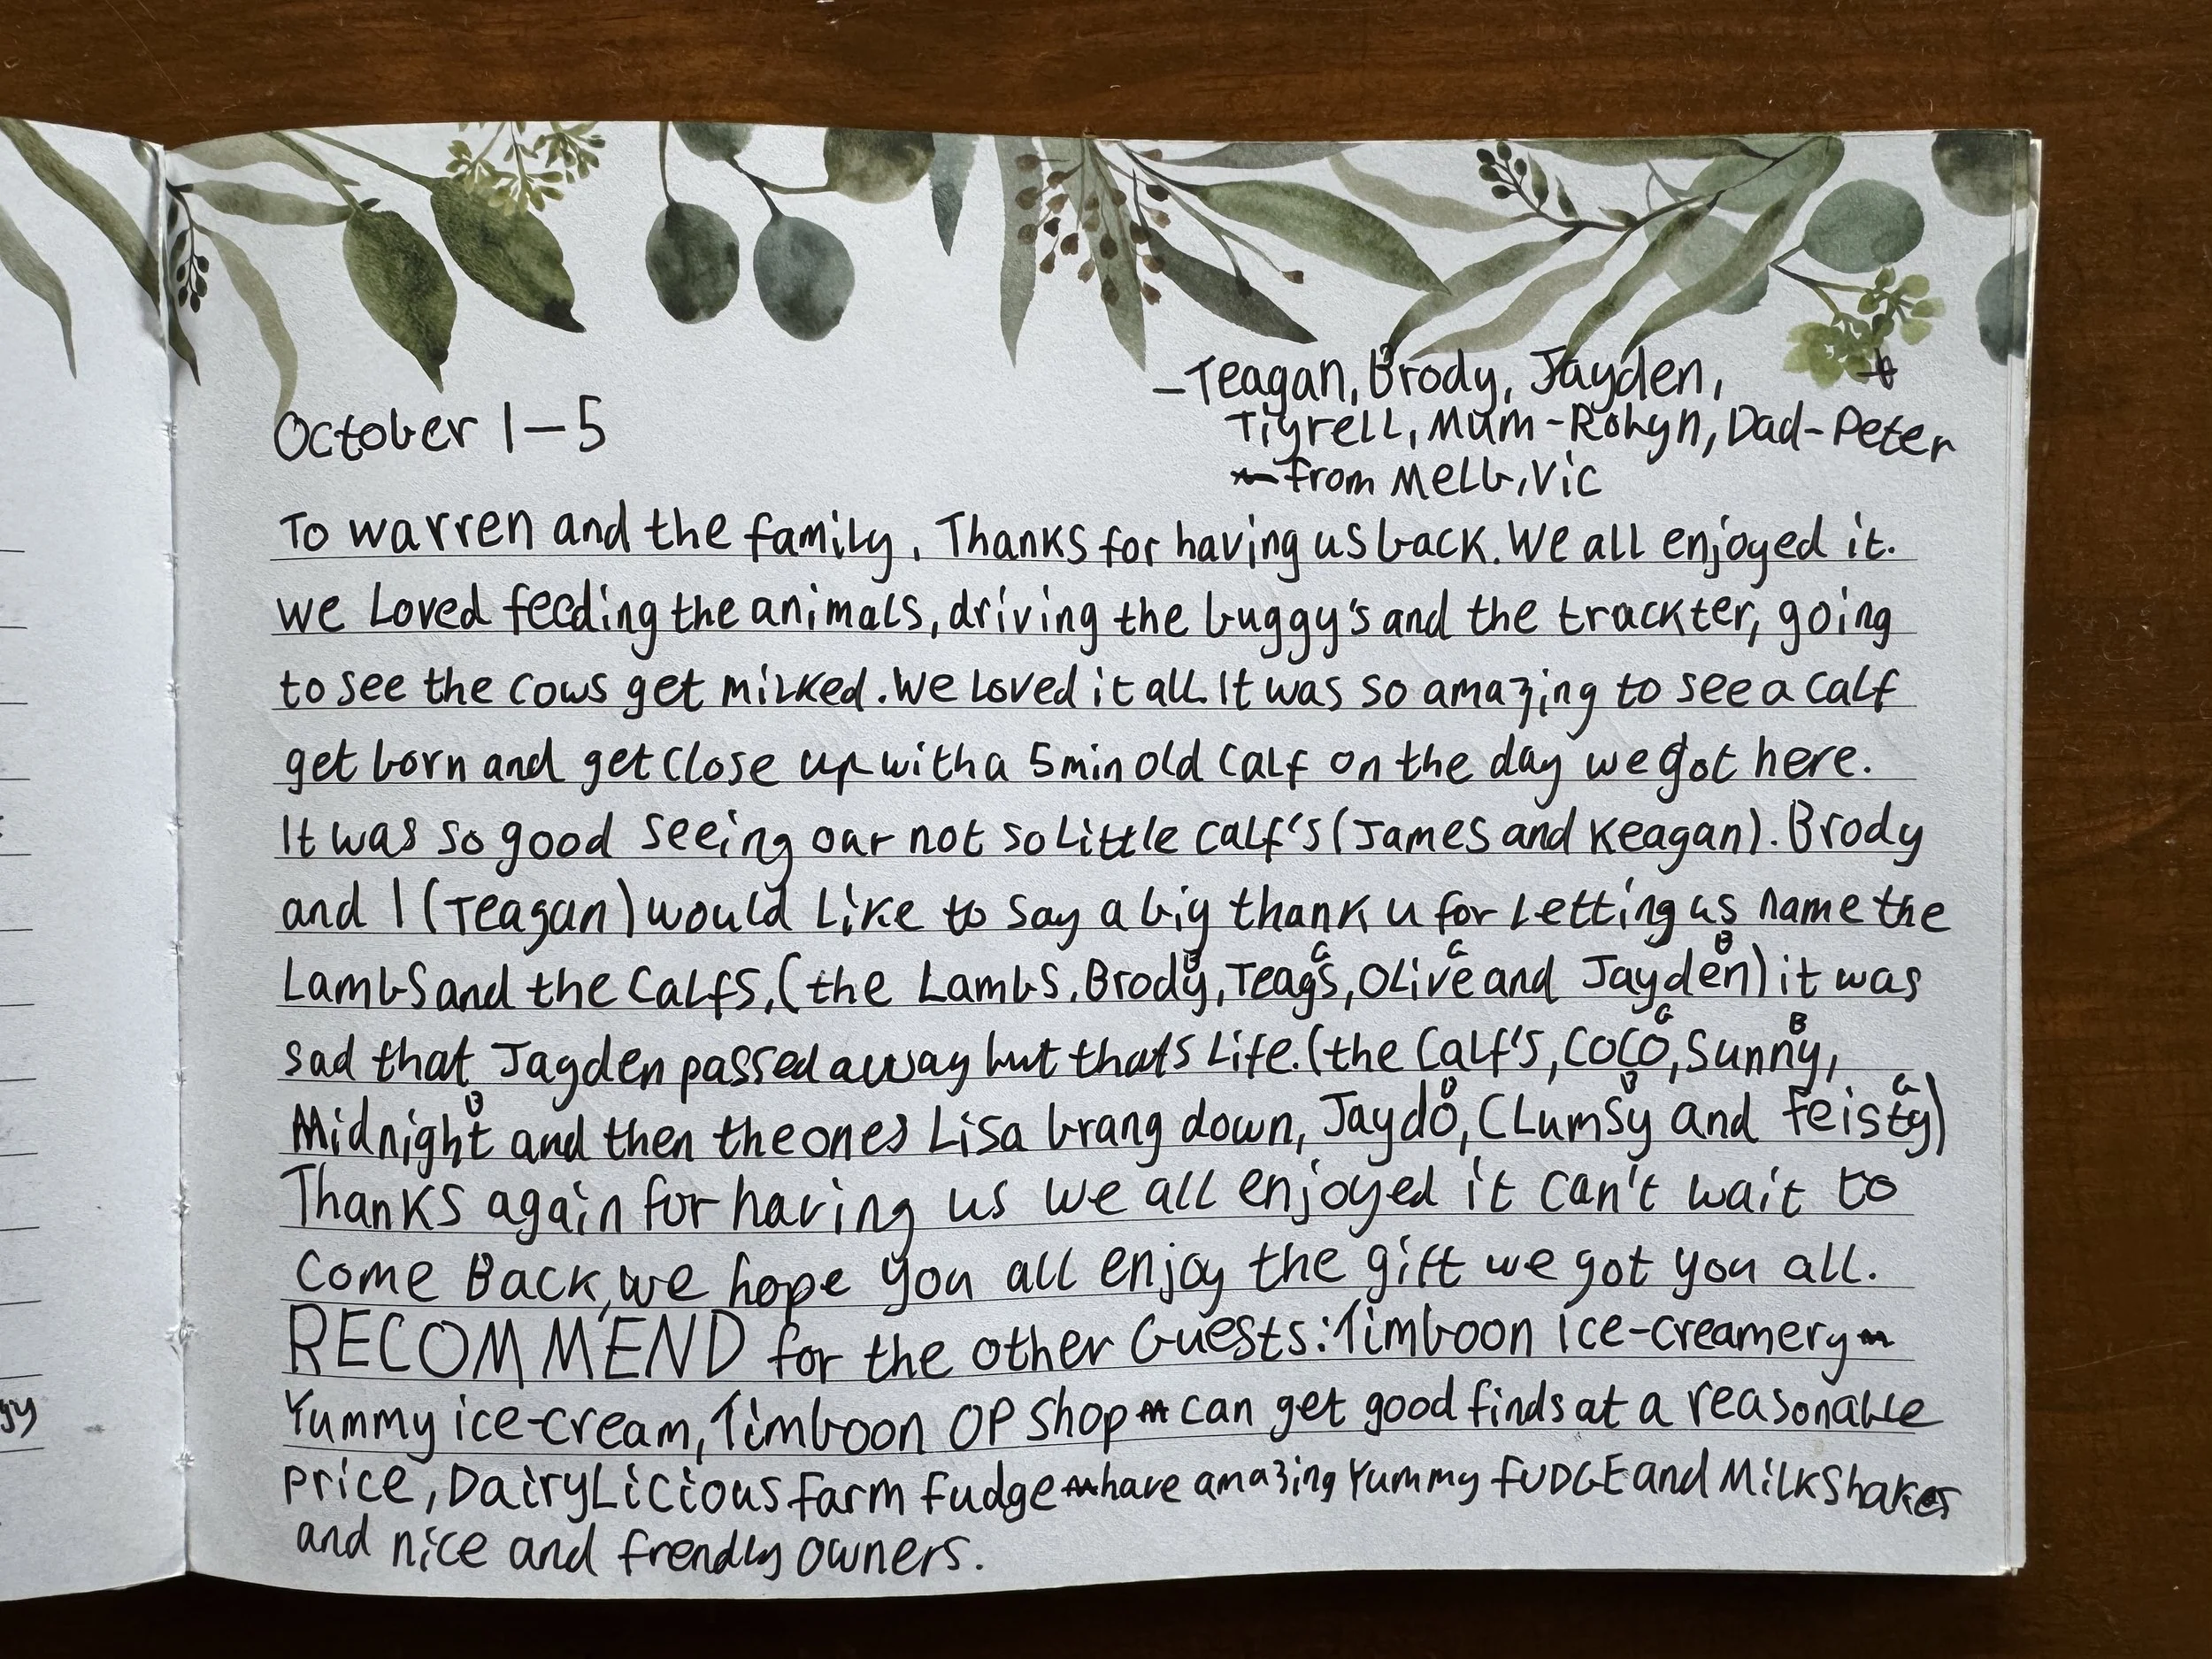 -Teagan, Brody, Jayden, +
October 1-5
Tiyrell, Mum-Robyn, Dad-Peter
from Melb, Vic
To warren and the family, Thanks for having us back. We all enjoyed it.
we Loved feeding the animals, driving the buggy's and the trackter, going
to see the cows get milked. We Loved it all. It was so amazing to see a calf
get born and get close up with a 5min old calf on the day we got here.
It was so good seeing our not so little calf's (James and Keagan). Brody
and I (Teagan) would Like to say a big thank u for Letting us name the
Lambs and the calfs, (the Lambs, Brody, Teags, Olive and Jayden) it was
B G G B
sad that Jayden passed away but thats Life. (the calf's, COCO, Sunny,
G B
Midnight and then the ones Lisa brang down, Jaydo, CLumsy and feisty)
B B B G
Thanks again for having us we all enjoyed it can't wait to
come Back, we hope you all enjoy the gift we got you all.
RECOMMEND for the other Guests: Timboon ice-creamery
Yummy ice-cream, Timboon OP shop can get good finds at a reasonable
price, DairyLicious farm fudge have amazing Yummy FUDGE and MilkShakes
and nice and frendly owners.
yy